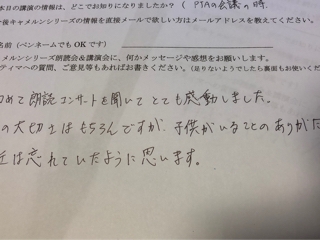 本日の講演の情報は、どこでお知りになりましたか？（PTAの会議の時
後キャメルンシリーズの情報を直接メールで欲しい方はメールアドレスを教えてください。
前（ペンネームでも OK です）
メルンシリーズ朗読会＆講演会に、何かメッセージや感想をお願いします。
ティマへの質問、ご意見等もあればお書きください。（足りないようでしたら裏面もお使いくだ
初めて朗読コンサートを聞いてとても感動しました。
の大切さはもちろんですが、子供がいることのありがた
近は忘れていたように思います。